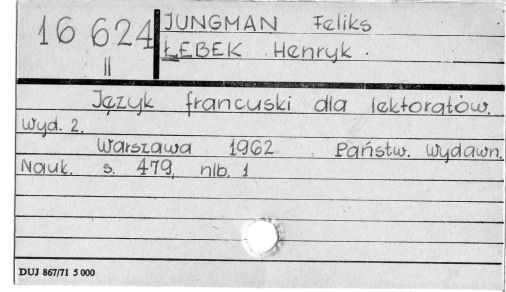 16 624
II
JUNGMAN Feliks
ŁEBEK Henryk.
Język francuski dla lektoratów.
Wyd. 2.
Warszawa 1962 Państw. Wydawn.
Nauk. s. 479, nlb. 1
DUJ 867/71 5 000